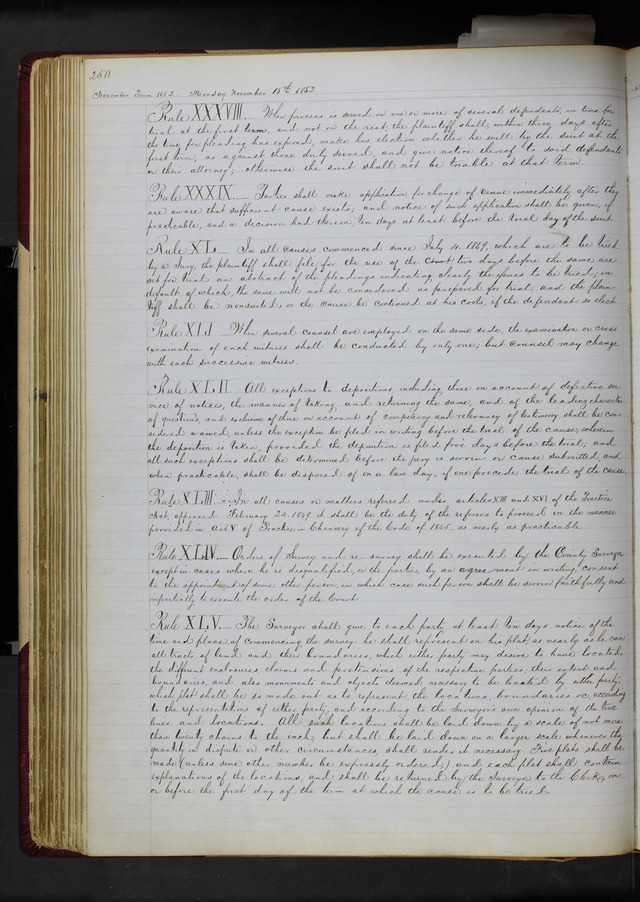 250.
November Term 1852. Monday November 15th 1852
Rule XXXVIII. When process is served in one or more of several defendants, in time for
trial at the first term, and not on the rest, the plaintiff shall, within three days after
the time for pleading has expired, make his election whether he will try the suit at the
first term, as against those duly served, and give notice thereof to said defendants
or their attorney; otherwise the suit shall not be triable at that term.
Rule XXXIX. Parties shall make application for change of venue immediately after they
are aware that sufficient cause exists; and notice of such application shall be given, if
practicable, and a decision had thereon, ten days at least before the trial day of the suit.
Rule XL. In all causes commenced since July 4. 1849, which are to be tried
by a Jury, the plaintiff shall file, for the use of the court two days before the same are
set for trial an abstract of the pleadings indicating clearly the issues to be tried; in
default of which, the same will not be considered as prepared for trial, and the plain-
tiff shall be nonsuited; or the cause be continued at his costs, if the defendant so elect.
Rule XLI When several counsel are employed on the same side, the examination or cross
examination of each witness shall be conducted by only one; but counsel may change
with each successive witness.
Rule XLII. All exceptions to depositions including those on account of defective ser-
vice of notices, the manner of taking, and returning the same, and of the leading character
of questions, and exclusive of those on account of competency and relevancy of testimony shall be con-
sidered waived, unless the exception be filed in writing before the trial of the cause, wherein
the deposition is taken, provided the deposition is filed five days before the trial, and
all such exceptions shall be determined before the jury is sworn or cause submitted, and
when practicable, shall be disposed of on a law day, if one precede the trial of the cause.
Rule XLIII. In all causes or matters referred under articles XIII and XVI of the Practice
Act, approved February 24. 1849, it shall be the duty of the referees to proceed in the manner
provided in Art V of Practice in Chancery of the Code of 1845. as nearly as practicable
Rule XLIV. Orders of Survey and re-survey shall be executed by the County Surveyor
except in cases when he is disqualified, or the parties, by an agreement in writing, consent
to the appointment of some other person, in which case such person shall be sworn faithfully and
impartially to execute the order of the Court.
Rule XLV. The Surveyor shall give to each party at least ten days notice of the
time and place of commencing the survey: he shall represent on his plat as nearly as he can
all tracts of land and their boundaries, which either party may desire to have located
the different enclosures, claims and pretensions of the respective parties, their extent and
boundaries, and also monuments and objects deemed necessary to be located by either party;
which plat shall be so made out as to represent the locations, boundaries &c, according
to the representations of either party, and according to the Surveyor's own opinion of the true
lines and locations. All such locations shall be laid down by a scale of not more
than twenty chains to the inch, but shall be laid down on a larger scale whenever the
quantity in dispute or other circumstances, shall render it necessary. Five plats shall be
made (unless some other number be expressly ordered;) and each plat shall contain
explanations of the locations, and shall be returned by the Surveyor to the Clerk, on
or before the first day of the term at which the cause is to be tried.